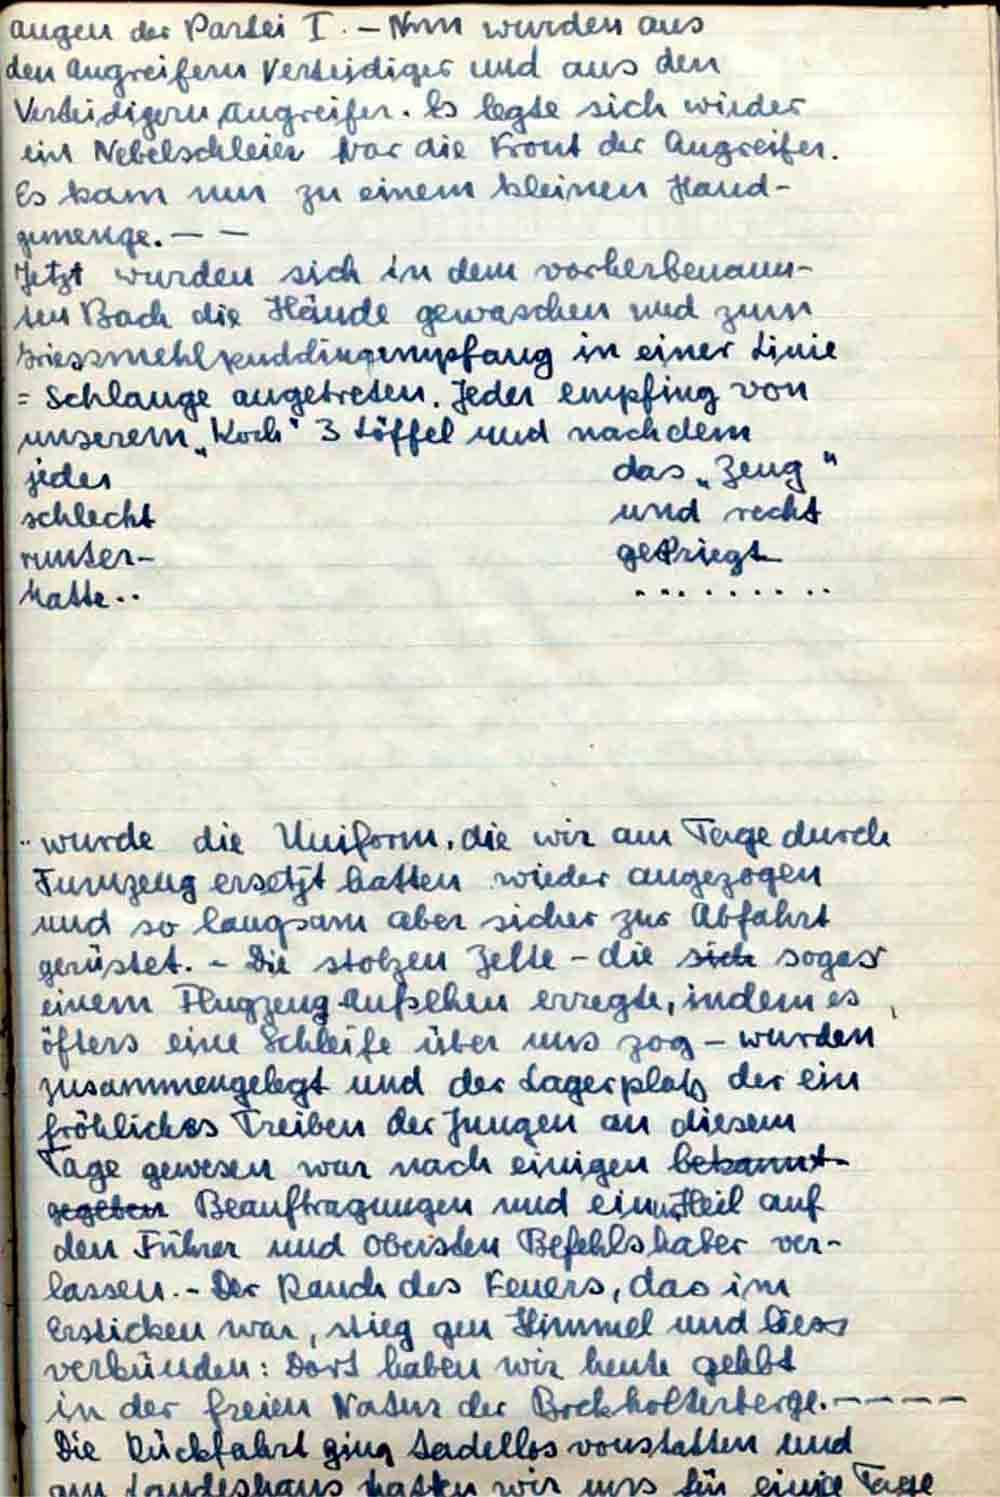 augen der Partei I. – Nun wurden aus
den Angreifern Verteidiger und aus den
Verteidigern Angreifer. Es legte sich wieder
ein Nebelschleier vor die Front der Angreifer.
Es kam nun zu einem kleinen Hand-
gemenge. – –
Jetzt wurden sich in dem vorherbenann-
ten Bach die Hände gewaschen und zum
Griessmehlpuddingempfang in einer Linie
= Schlange angetreten. Jeder empfing von
unserem „Koch" 3 Löffel und nachdem
jeder das „Zeug"
schlecht und recht
runter- gekriegt
hatte.. .........
..wurde die Uniform, die wir am Tage durch
Turnzeug ersetzt hatten wieder angezogen
und so langsam aber sicher zur Abfahrt
gerüstet. – Die stolzen Zelte – die sich sogar
einem Flugzeug Aufsehen erregte, indem es
öfters eine Schleife über uns zog – wurden
zusammengelegt und der Lagerplatz der ein
fröhliches Treiben der Jungen an diesem
Tage gewesen war nach einigen bekannt-
gegeben Beauftragungen und einem „Heil auf
den Führer und Obersten Befehlshaber ver-
lassen. – Der Rauch des Feuers, das im
Ersticken war, stieg gen Himmel und liess
verkünden: Dort haben wir heute gelebt
in der freien Natur der Bockholterberge. – – – –
Die Rückfahrt ging tadellos vonstatten und
am Landeshaus hatten wir uns für einige Tage